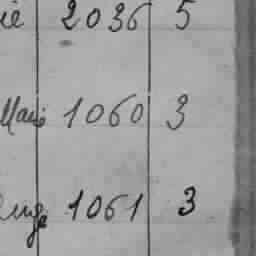 ie 2036 5
Mari 1060 3
1061 3